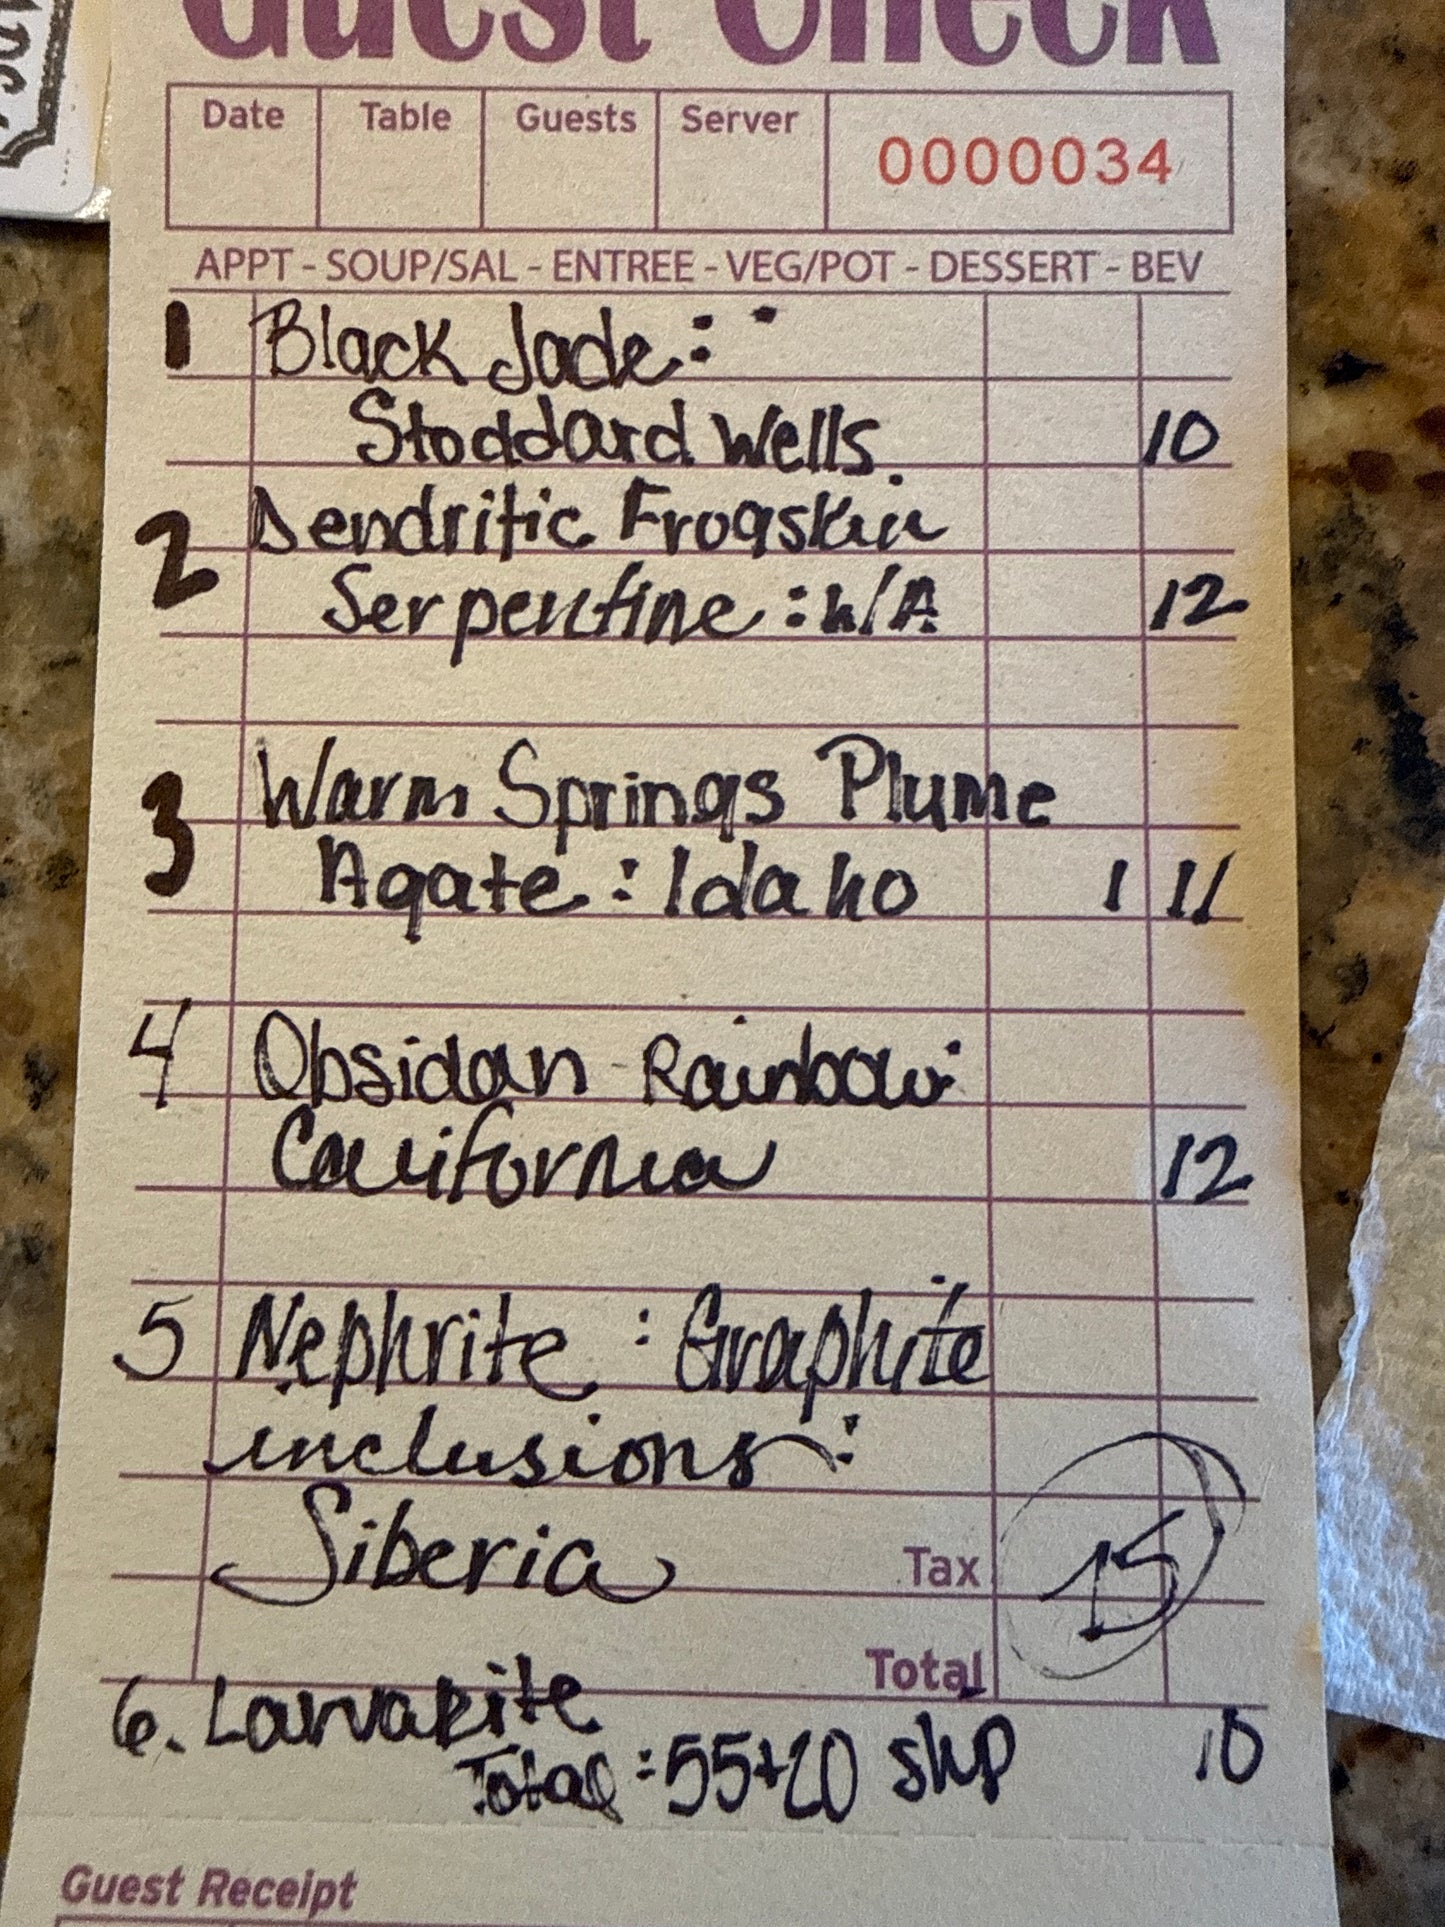 Guest Check
Date Table Guests Server 0000034
APPT - SOUP/SAL - ENTREE - VEG/POT - DESSERT - BEV
1 Black Jade:
Stoddard Wells. 10
2 Dendritic Frogskin
Serpentine : W/A 12
3 Warm Springs Plume
Agate : Idaho 1 11
4 Obsidan - Rainbow
California 12
5 Nephrite : Graphite
inclusions:
Siberia Tax 15
Total
6. Larvakite 10
Total : 55+20 shp
Guest Receipt